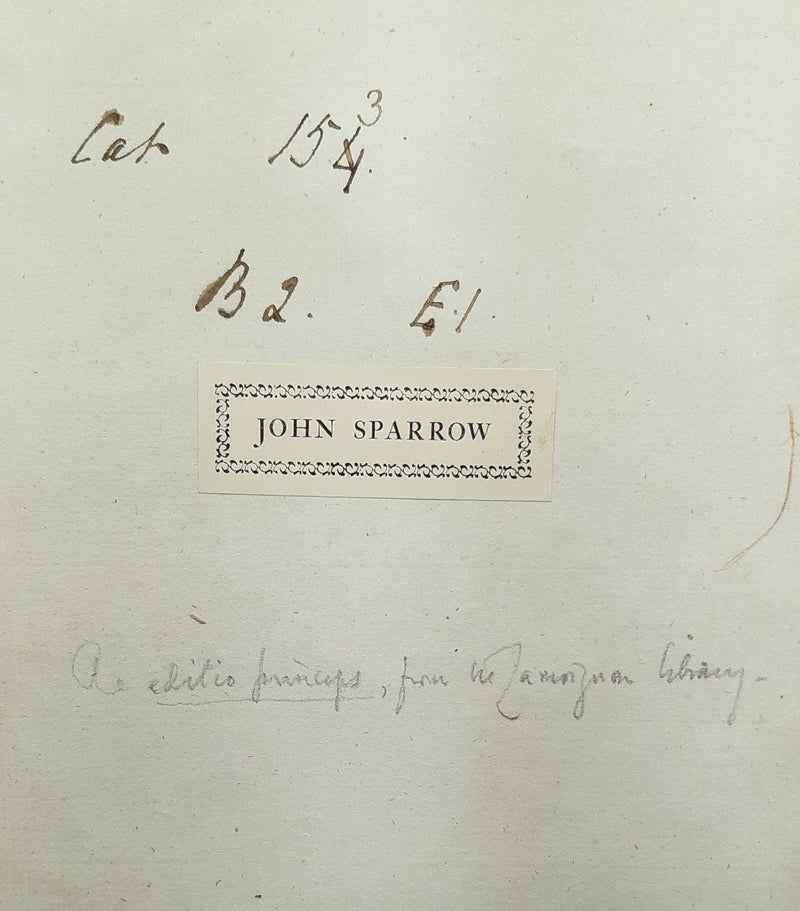 Cat 154 3
B 2. E.1.
JOHN SPARROW
The editio princeps, from the Lamoignon library.